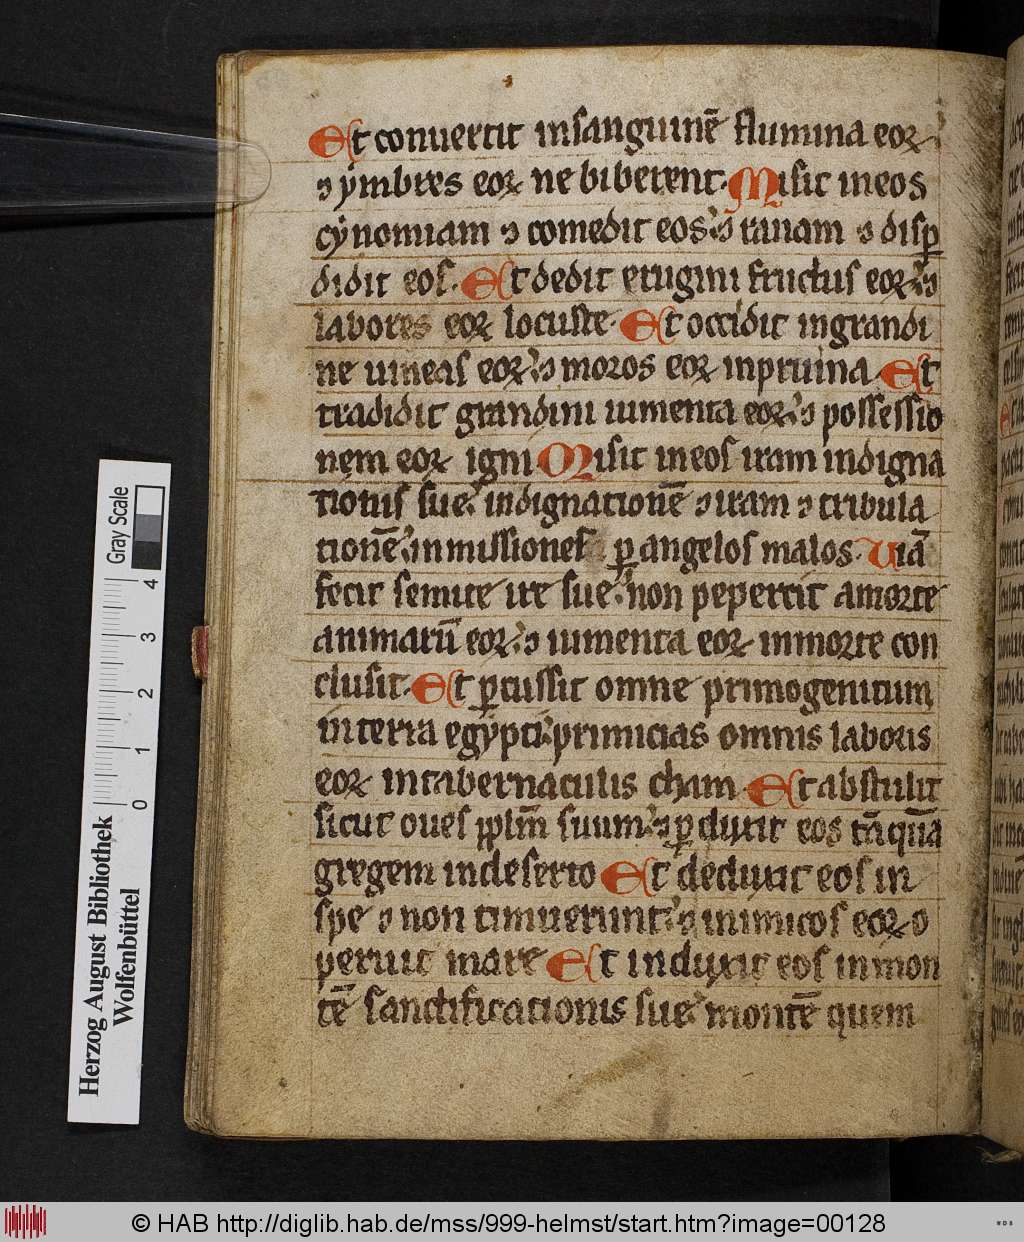 Et conuertit insanguinē flumina eoꝝ
⁊ ẏmbres eoꝝ ne biberent. Misit ineos
cẏnomiam ⁊ comedit eos ⁊ ranam ⁊ disꝑ
didit eos. Et dedit erugini fructus eoꝝ ⁊
labores eoꝝ locuste. Et occidit ingrandi
ne uineas eoꝝ ⁊ moros eoꝝ inpruina. Et
tradidit grandini iumenta eoꝝ ⁊ possessio
nem eoꝝ igni Misit ineos iram indigna
tionis sue. indignationē ⁊ iram ⁊ tribula
tionē. inmissiones ꝑ angelos malos. Uiā
fecit semite ire sue. non pepercit amorte
animarū eoꝝ. ⁊ iumenta eoꝝ inmorte con
clusit. Et ꝑcussit omne primogenitum
interra egẏpti. primicias omnis laboris
eoꝝ intabernaculis cham. Et abstulit
sicut oues pplm̄ suum. ⁊ ꝑduxit eos tāquā
gregem indeserto Et deduxit eos in
spe ⁊ non timuerunt. ⁊ inimicos eoꝝ o
peruit mare Et induxit eos inmon
tē sanctificationis sue. montē quem
Herzog August Bibliothek
Wolfenbüttel
0 1 2 3 4
Gray Scale
© HAB http://diglib.hab.de/mss/999-helmst/start.htm?image=00128